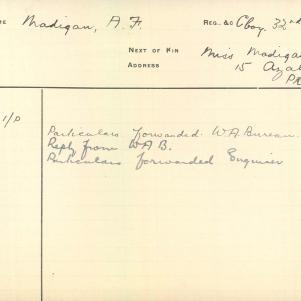 ME Madigan, A. F. REG. No C Coy. 32nd
NEXT OF KIN Miss Madigan
ADDRESS 15
1/P
Particulars forwarded W.A. Bureau.
Reply from W.A.B.
Particulars forwarded Enquirer